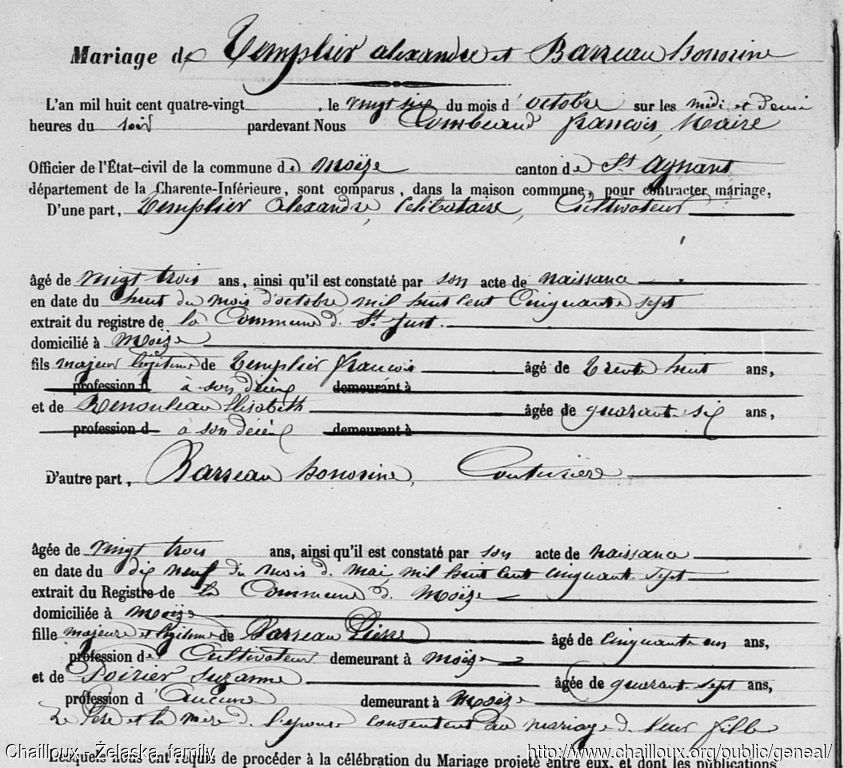 Mariage de Templier alexandre et Barreau honorine
L'an mil huit cent quatre-vingt , le vingt six du mois d'octobre sur les midi et demi
heures du soir pardevant Nous Combeaud françois, Maire
Officier de l'État-civil de la commune de Moëze canton de St Agnant
département de la Charente-Inférieure, sont comparus, dans la maison commune, pour contracter mariage,
D'une part, Templier alexandre, célibataire, Cultivateur
âgé de vingt trois ans, ainsi qu'il est constaté par son acte de naissance
en date du huit du mois d'octobre mil huit cent cinquante sept
extrait du registre de la Commune de St Just.
domicilié à Moëze
fils majeur légitime de Templier françois âgé de trente huit ans,
profession d à son décès demeurant à
et de Renouleau Elisabeth âgée de quarante six ans,
profession d à son décès demeurant à
D'autre part, Barreau honorine, Couturière
âgée de vingt trois ans, ainsi qu'il est constaté par son acte de naissance
en date du dix neuf du mois de mai mil huit cent cinquante sept
extrait du Registre de la Commune de Moëze
domiciliée à Moëze
fille majeure et légitime de Barreau Pierre âgé de cinquante un ans,
profession de Cultivateur demeurant à Moëze
et de Poirier Suzanne âgée de quarante sept ans,
profession d'aucune demeurant à Moëze
Le Père et la mère de l'épouse consentent au mariage de leur fille
Lesquels nous ont requis de procéder à la célébration du Mariage projeté entre eux, et dont les publications
Chailloux - Żelaska family
http://www.chailloux.org/public/geneal/